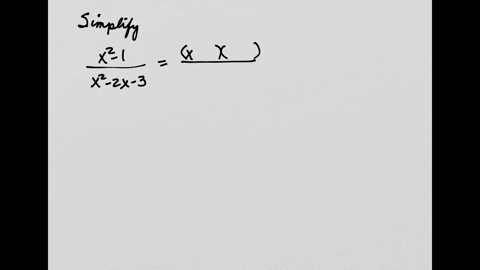 Simplify
x²-1 / x²-2x-3 = (x )(x )